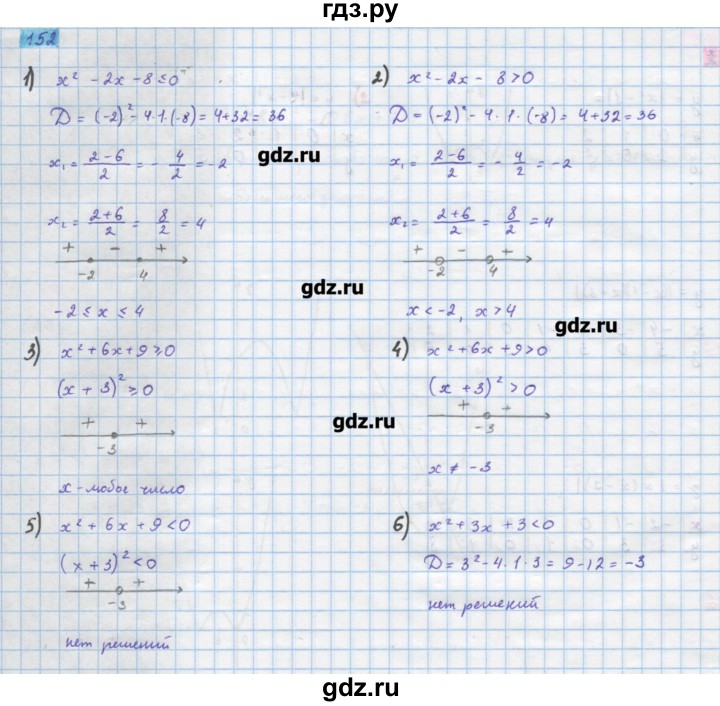 гдз.ру
152
1) x² - 2x - 8 ≤ 0
D = (-2)² - 4·1·(-8) = 4+32 = 36
x₁ = (2-6)/2 = - 4/2 = -2
x₂ = (2+6)/2 = 8/2 = 4
+ - +
-2 4
-2 ≤ x ≤ 4
2) x² - 2x - 8 > 0
D = (-2)² - 4·1·(-8) = 4+32 = 36
x₁ = (2-6)/2 = - 4/2 = -2
x₂ = (2+6)/2 = 8/2 = 4
+ - +
-2 4
x < -2, x > 4
gdz.ru
gdz.ru
gdz.ru
3) x² + 6x + 9 ≥ 0
(x + 3)² ≥ 0
+ +
-3
x - любое число
4) x² + 6x + 9 > 0
(x + 3)² > 0
+ +
-3
x ≠ -3
gdz.ru
5) x² + 6x + 9 < 0
(x + 3)² < 0
+ +
-3
нет решений
6) x² + 3x + 3 < 0
D = 3² - 4·1·3 = 9 - 12 = -3
нет решений
gdz.ru